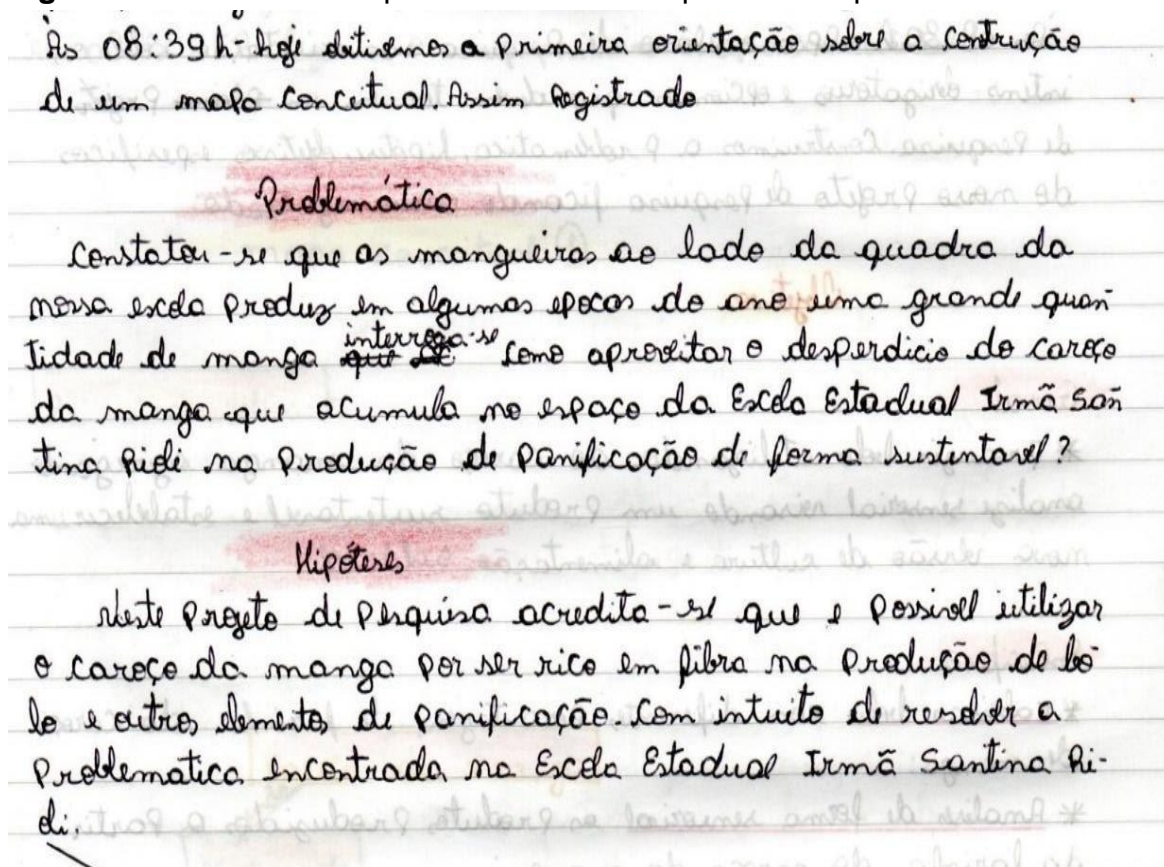 Às 08:39 h - hoje detivemos a primeira orientação sobre a contrução
de um mapa conceitual. Assim Registrado
Problemática
Constatou-se que as mangueiras ao lado da quadra da
nossa escola produz em algumas epocas do ano uma grande quan
tidade de manga interroga-se como aproveitar o desperdicio do caroço
da manga que acumula no espaço da Escola Estadual Irmã San
tina Rioli na produção de panificação de forma sustentavel?
Hipóteses
Neste Projeto de Pesquisa acredita-se que e possivel utilizar
o caroço da manga por ser rico em fibra na produção de bo
lo e outros elementos de panificação com intuito de resolver a
problematica encontrada na Escola Estadual Irmã Santina Ri-
oli.